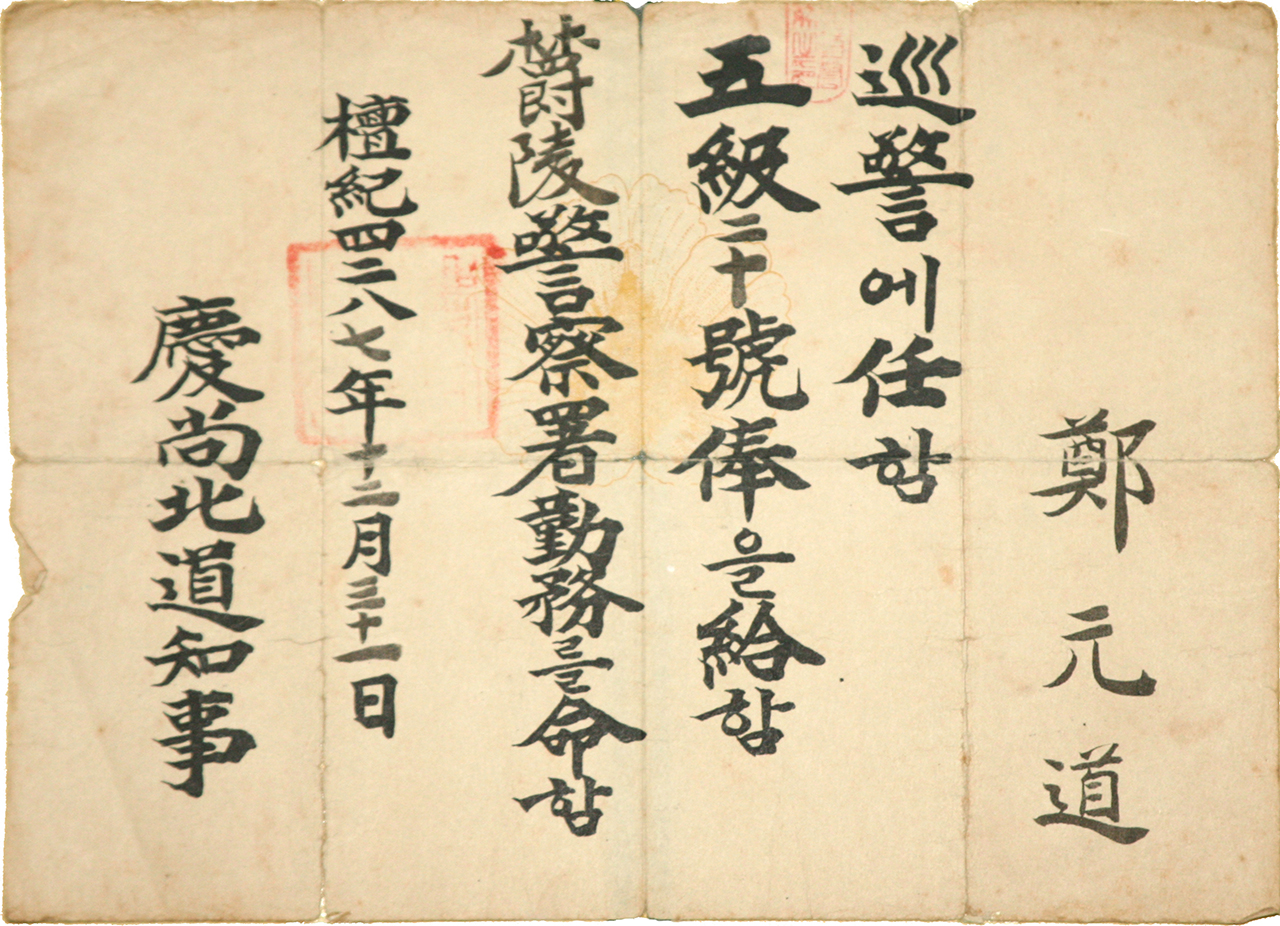 鄭元道
巡警에任함
五級二十號俸을給함
欝陵警察署勤務를命함
檀紀四二八七年十二月三十一日
慶尙北道知事